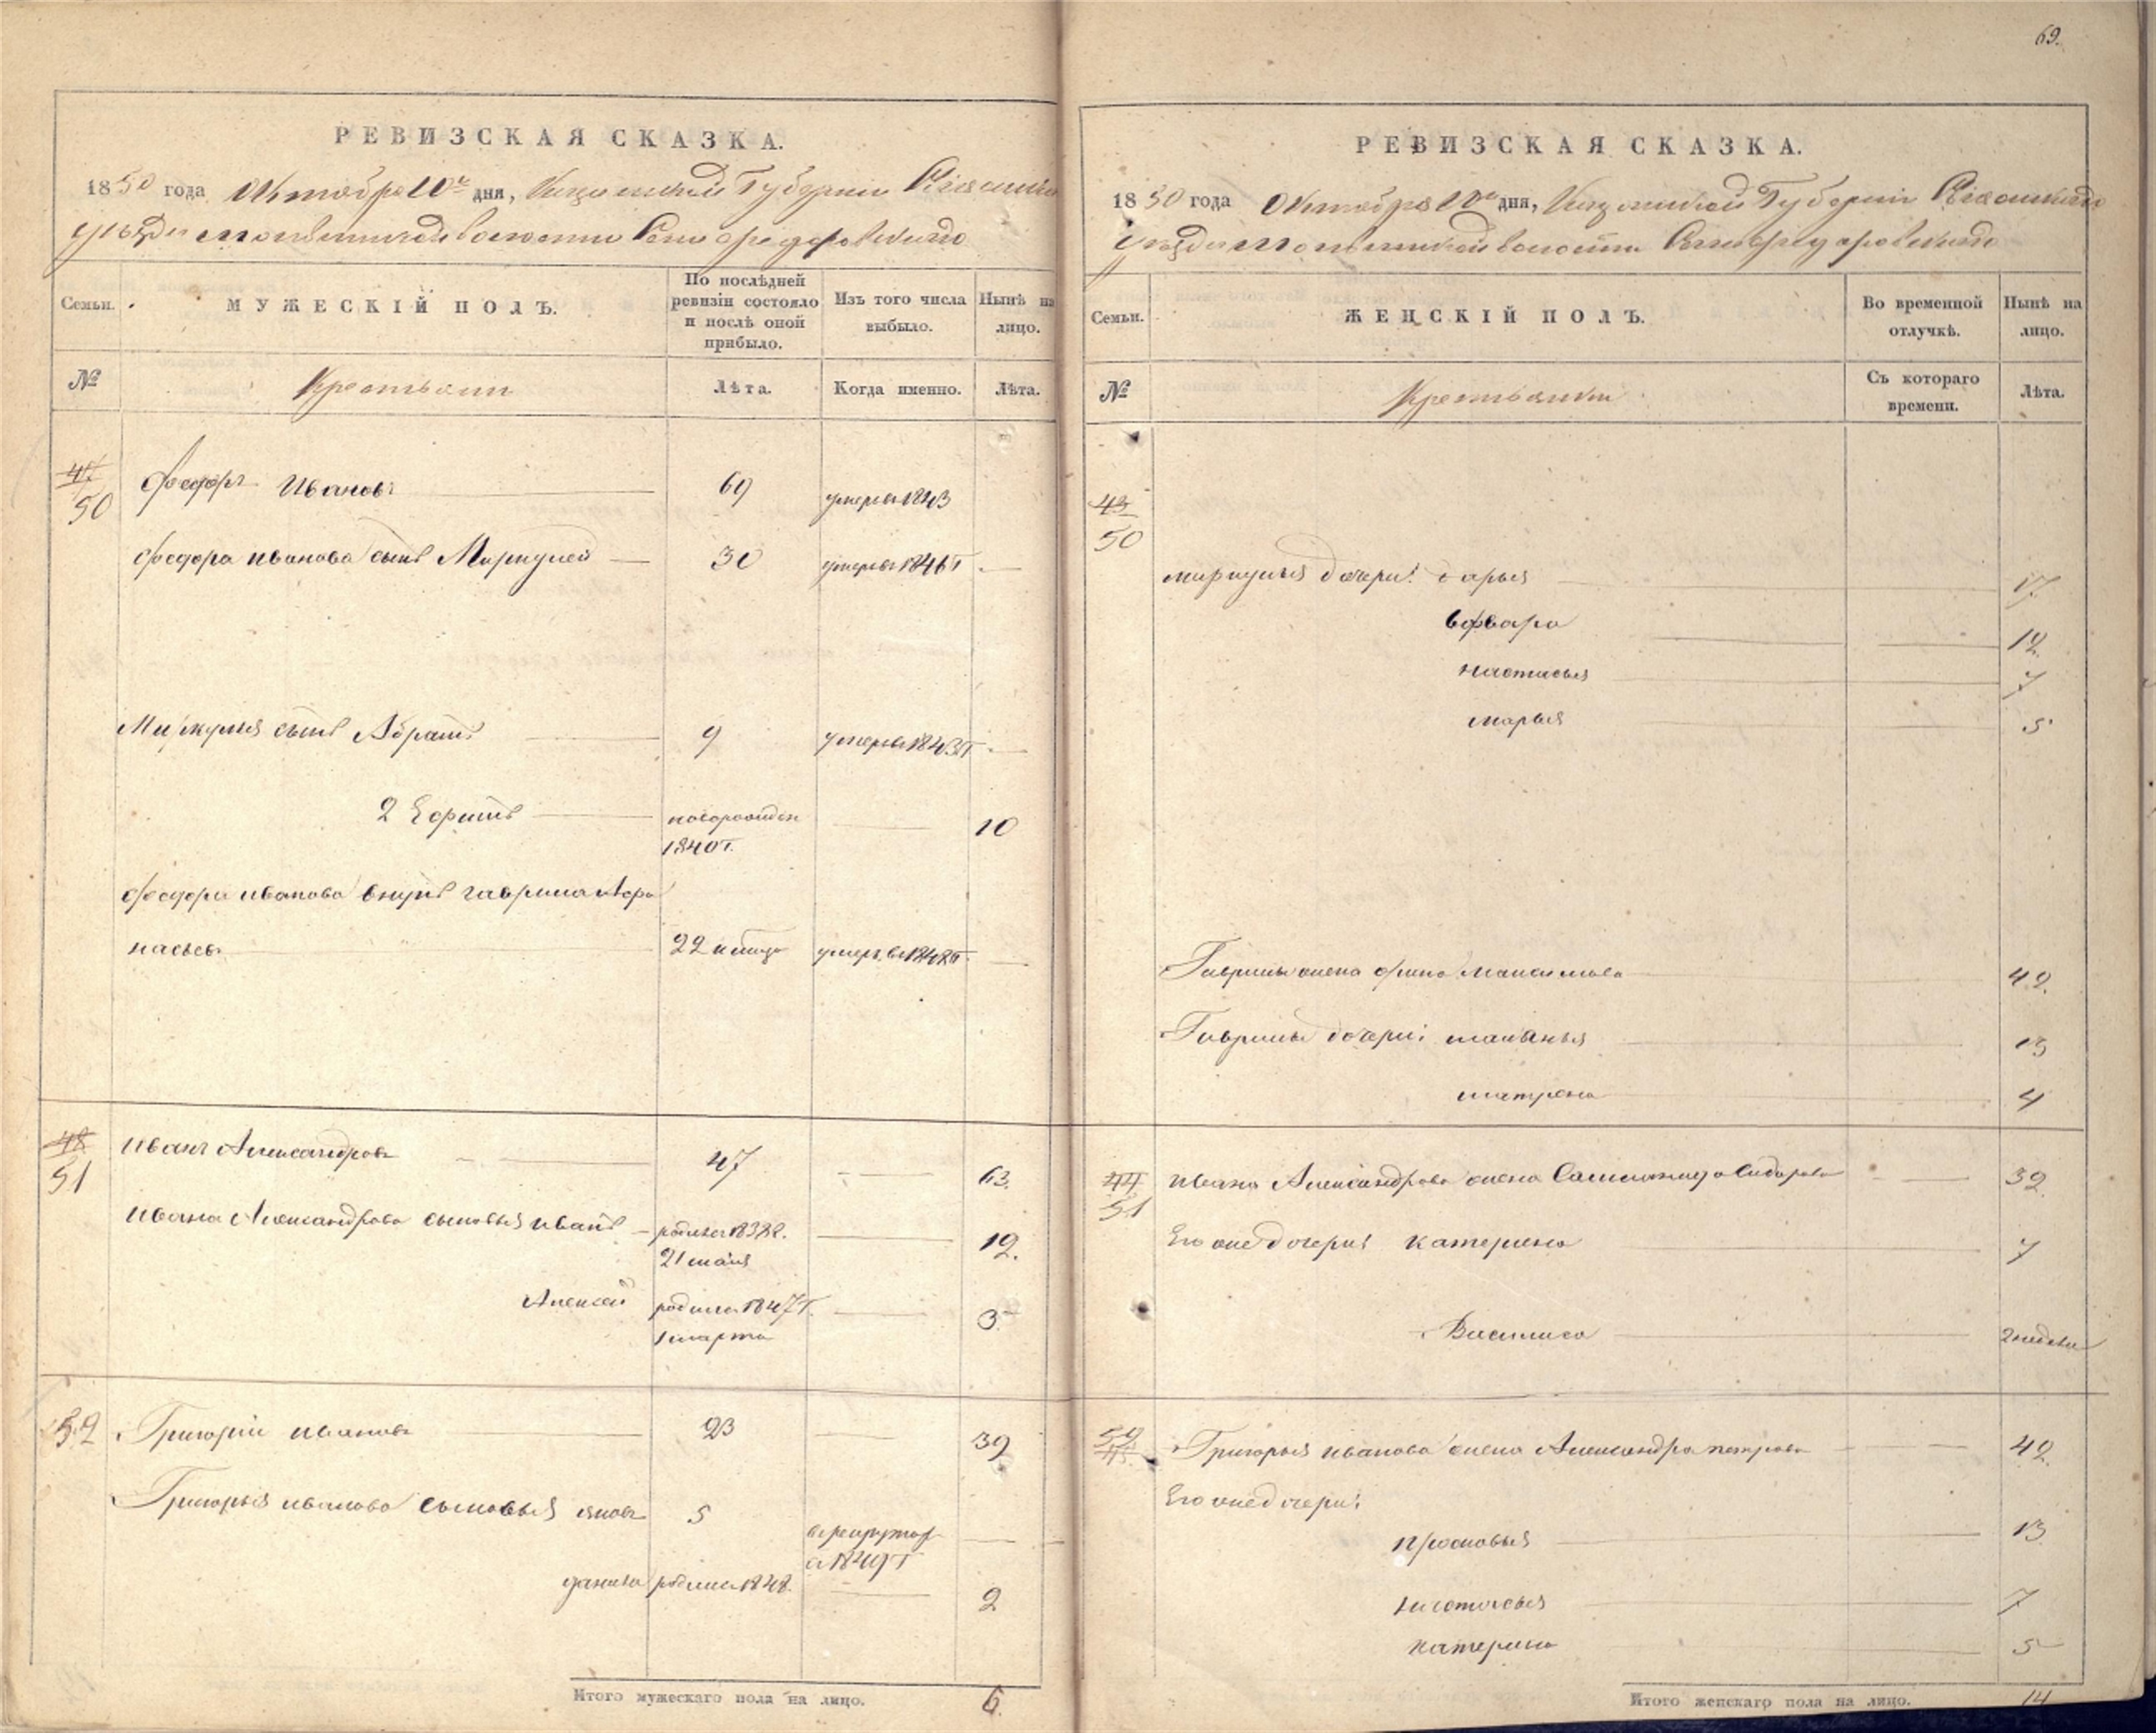 69.
РЕВИЗСКАЯ СКАЗКА.
1850 года Октября 10го дня, Казанской Губернии
уезда волости Села Федоровскаго
Семьи. МУЖЕСКІЙ ПОЛЪ. По послѣдней ревизіи состояло и послѣ оной прибыло. Изъ того числа выбыло. Нынѣ на лицо.
№ Крестьяни Лѣта. Когда именно. Лѣта.
47 50 Федоръ Ивановъ 69 умеръ 1843
Федора иванова сынъ Меркулей 30 умеръ 1846 Г
Меркулья сынъ Абрамъ 9 умеръ 1843 Г
2 Ефимъ новорожден 10
1840 Г.
Федора иванова внукъ гаврила Афо
насьевъ 22 умеръ 1848 Г
48 51 Иванъ Александровъ 47 63.
Ивана Александрова сыновья иванъ родился 1838 г. 12.
21 мая
Алексей родился 1847 Г. 3
1 марта
52 Григорий ивановъ 23 39
Григорья иванова сыновья яковъ 5 в рекрутах
с 1849 Г
данила родился 1848. 2
Итого мужескаго пола на лицо. 6.
РЕВИЗСКАЯ СКАЗКА.
1850 года Октября 10го дня, Казанской Губернии
уезда волости Села Федоровскаго
Семьи. ЖЕНСКІЙ ПОЛЪ. Во временной отлучкѣ. Нынѣ на лицо.
№ Крестьянки Съ котораго времени. Лѣта.
43
50
меркулья дочери: дарья 17
варвара 12.
настасья 7
марья 5
Гаврилы жена Максимова 42.
Гаврилы дочери: маланья 13
матрена 4
44 51 ивана Александрова жена Сидорова 32.
Его же дочери: катерина 7
Василиса 2 недели
52 45 Григорья иванова жена Александра петрова 42.
Его же дочери:
прасковья 13
настасья 7
катерина 5
Итого женскаго пола на лицо. 14